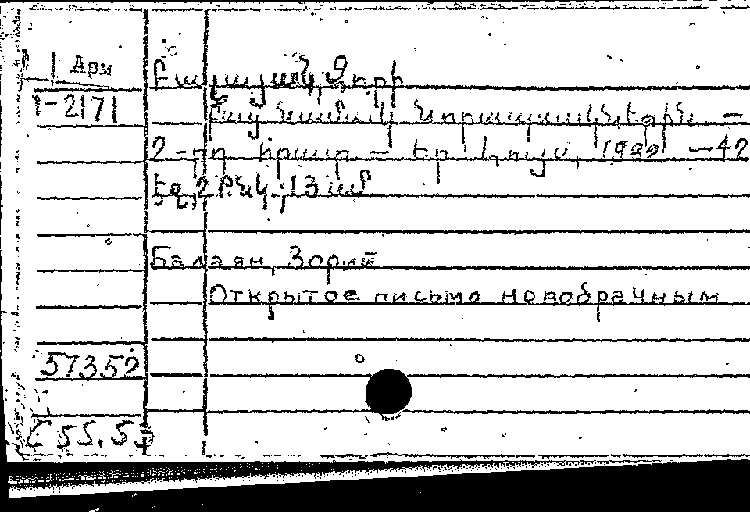 Арм
1-2171
Բալայան, Զորի
Բաց նամակ նորապսակներին. —
2-րդ հրատ. — Եր. Լույս, 1989 — 42
էջ, նկ., 13 սմ
Балаян, Зорий
Открытое письмо новобрачным
57352
С 55.53